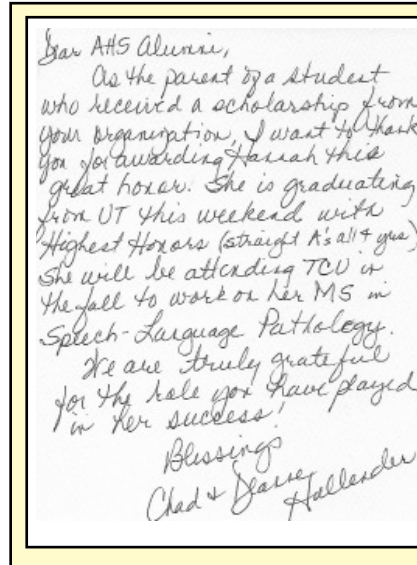 Dear AHS Alumni,
As the parent of a student
who received a scholarship from
your organization, I want to thank
you for awarding Hannah this
great honor. She is graduating
from UT this weekend with
Highest Honors (straight A's all 4 yrs)
She will be attending TCU in
the fall to work on her MS in
Speech-Language Pathology.
We are truly grateful
for the role you have played
in her success!
Blessings
Chad &
Hollender